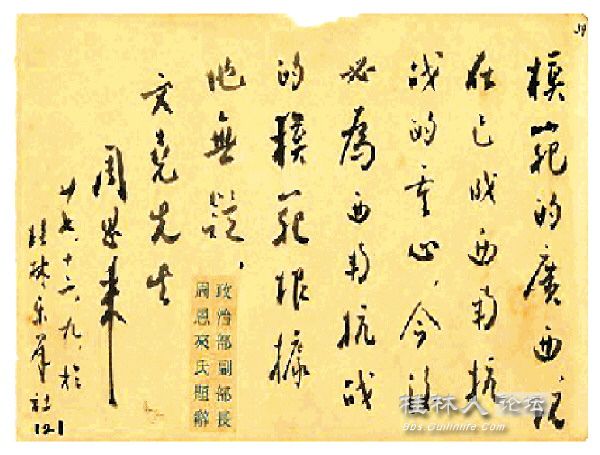 模範的廣西,现
在已成西南抗
战的重心,今後
必為西南抗战
的模範根據
地無疑,
文堯先生
周恩来
廿七.十二.九.於
桂林乐羣社
121
政治部副部長
周恩來氏題辭
桂林人论坛
Bbs.Guilinlife.Com